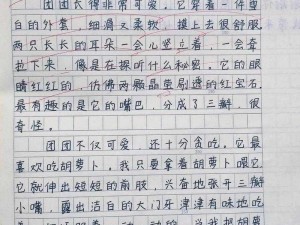 团团长得非常可爱。它穿着一件雪
白的外套，细滑又柔软，摸上去很舒服
两只长长的耳朵一会心竖立着，一会耷
拉下来，像是在探听什么秘密。它的眼
睛红红的，仿佛两颗晶莹剔透的红宝石
最有趣的是它的嘴巴，分成了三瓣，很
奇怪。
团团不仅可爱，还十分贪吃。它最
喜欢吃胡萝卜。我只要拿着胡萝卜喂它
它就伸出短短的前肢，兴奋地张开三瓣
小嘴，露出洁白的大门牙津津有味地吃